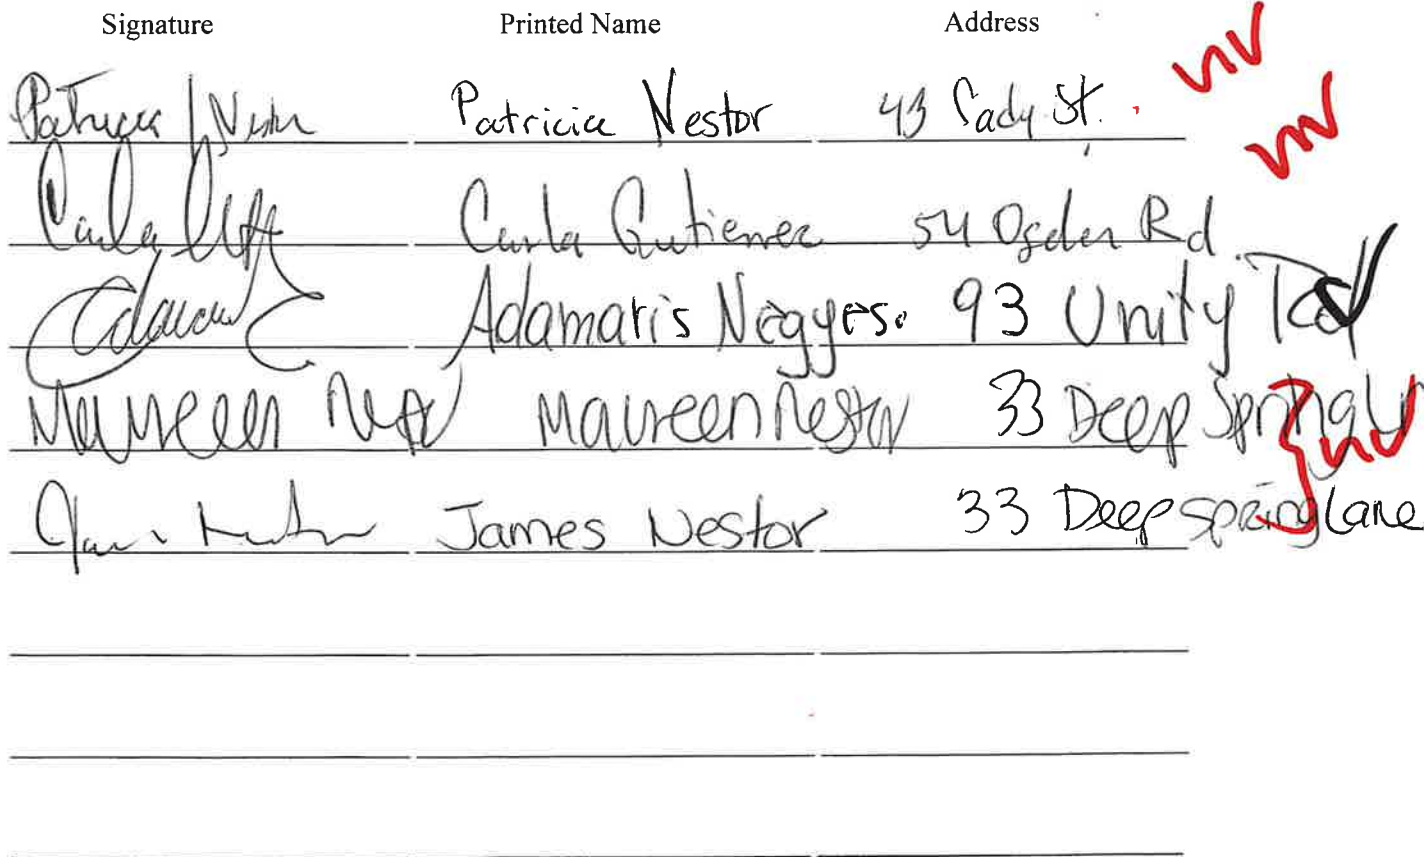 Signature Printed Name Address
nv
Patricia Nestor Patricia Nestor 43 Cady St.
nv
Carla Carla Gutierrez 54 Ogden Rd
Adamaris Negyesi 93 Unity
Maureen Maureen Nestor 33 Deep Spring Ln
nv
James Nestor 33 Deep Spring Lane